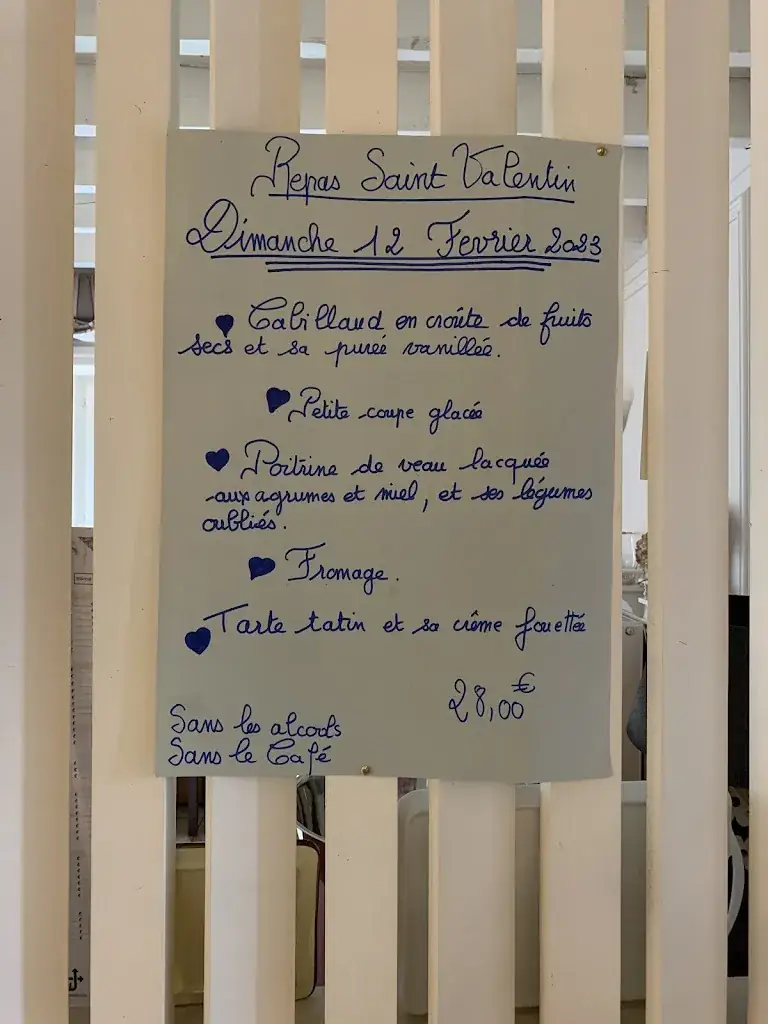 Repas Saint Valentin
Dimanche 12 Fevrier 2023
Cabillaud en croûte de fruits
secs et sa purée vanillée.
Petite coupe glacée
Poitrine de veau lacquée
aux agrumes et miel, et ses légumes
oubliés.
Fromage.
Tarte tatin et sa crême fouettée
28,00€
Sans les alcools
Sans le Café